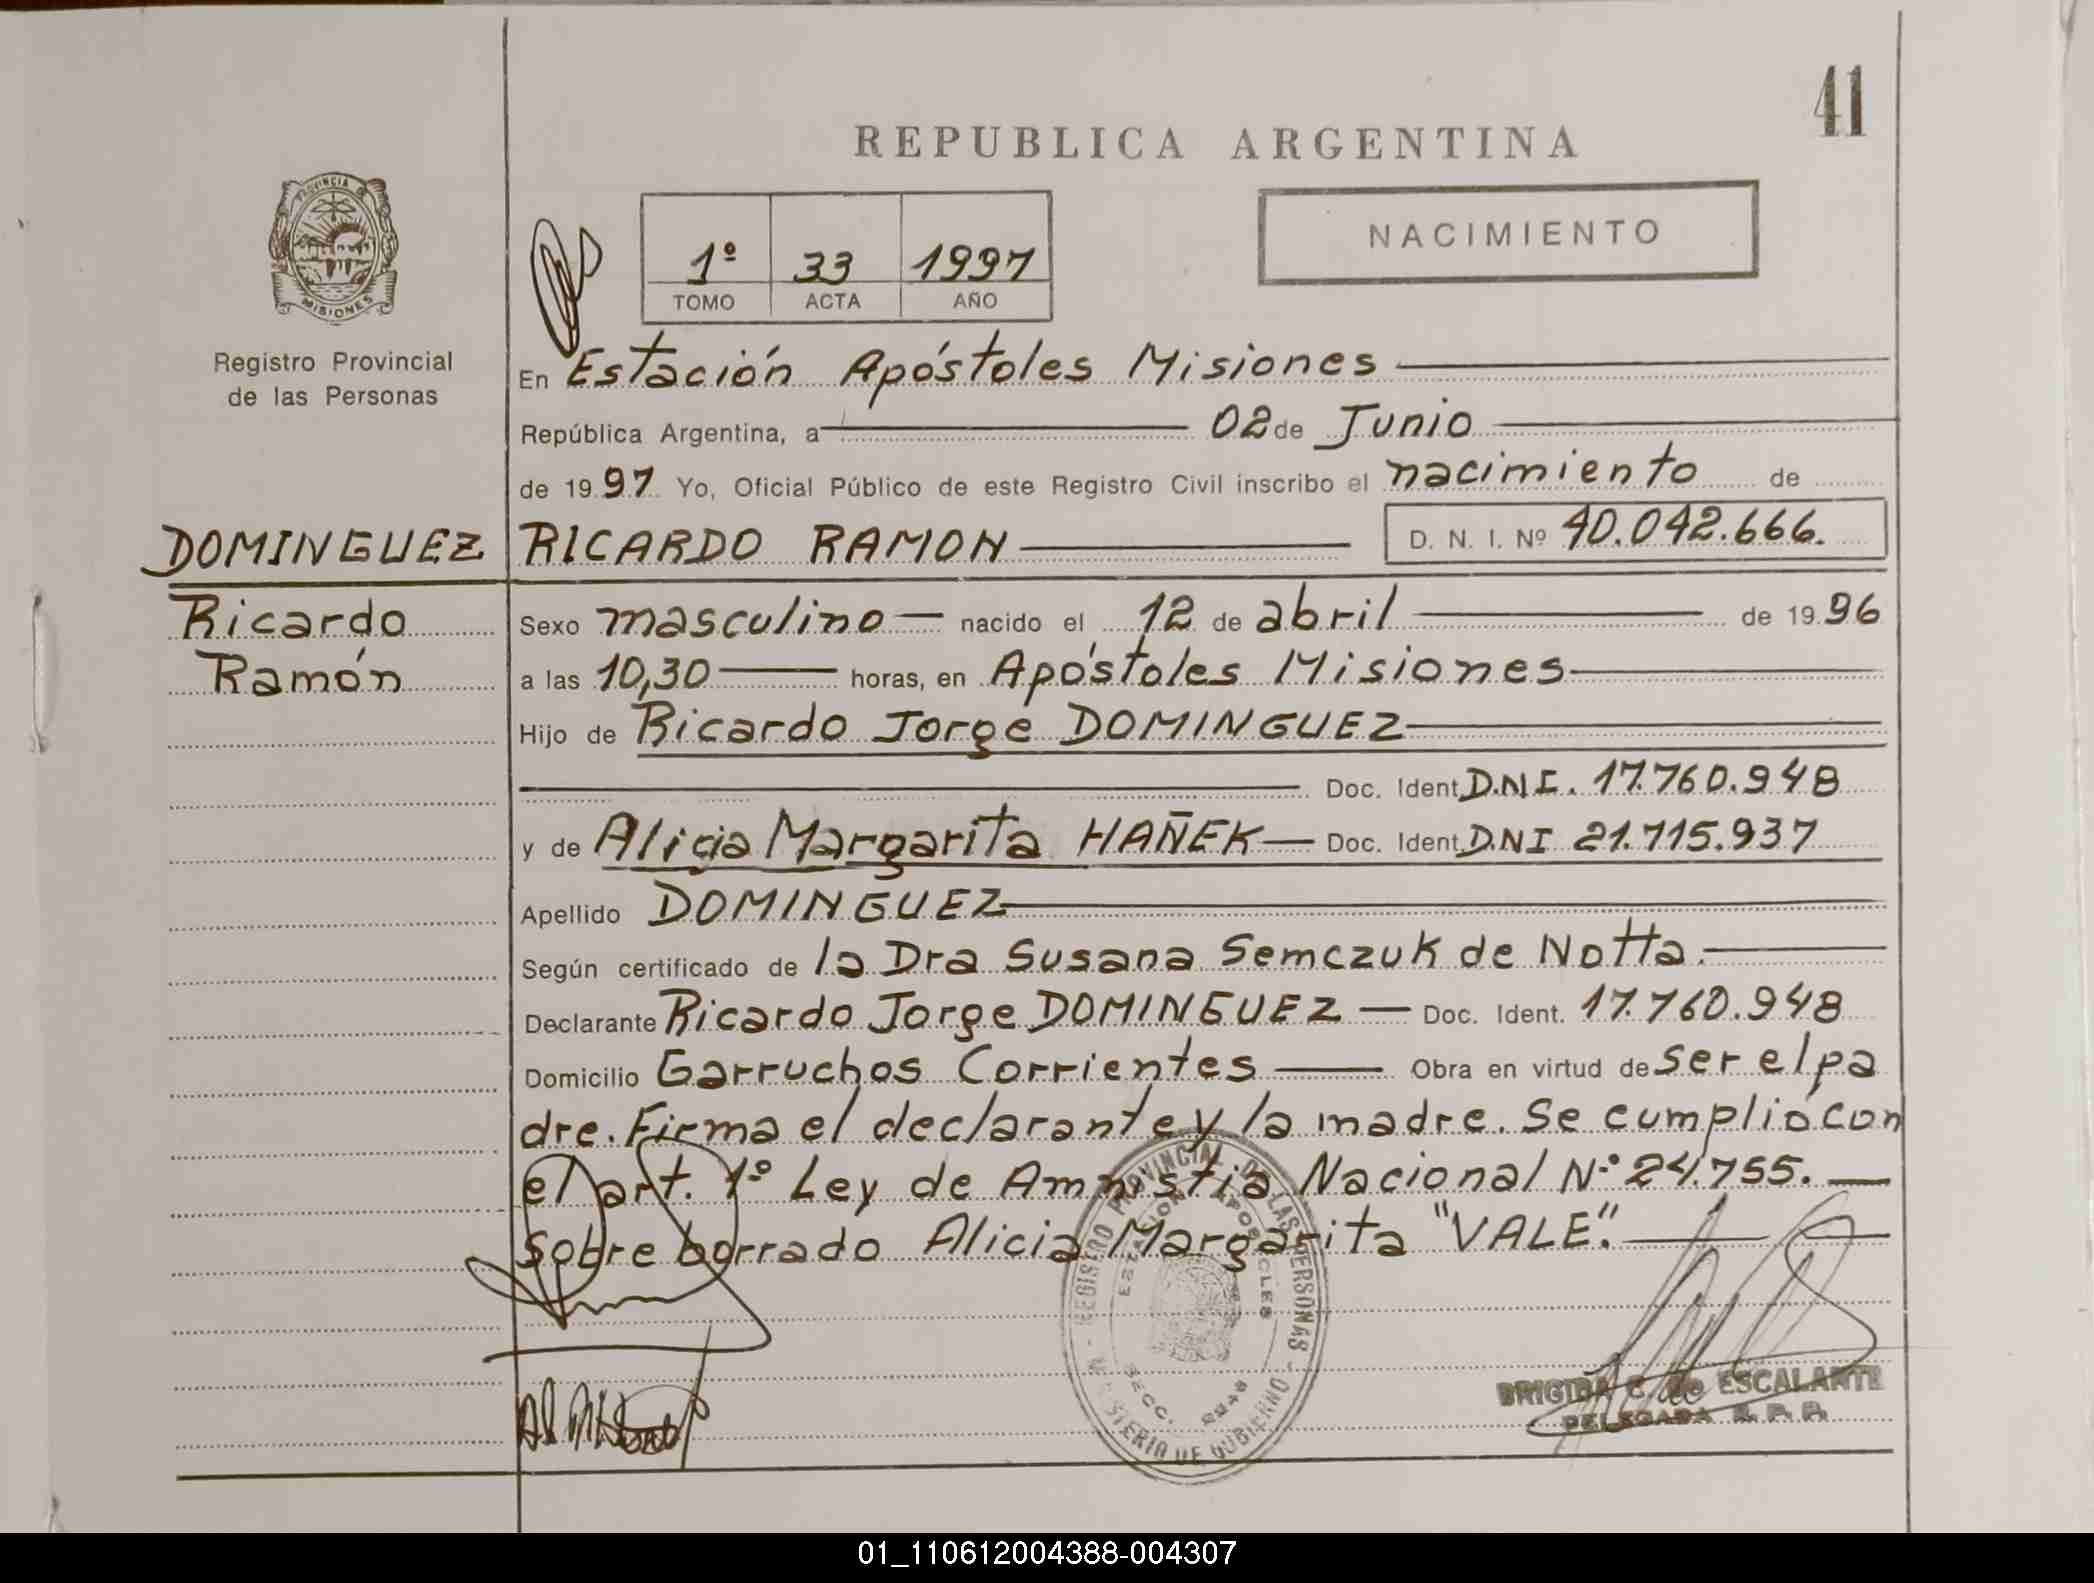 41
REPUBLICA ARGENTINA
PROVINCIA DE
MISIONES
Registro Provincial
de las Personas
1º 33 1997
TOMO ACTA AÑO
NACIMIENTO
En Estación Apóstoles Misiones
República Argentina, a 02 de Junio
de 1997 Yo, Oficial Público de este Registro Civil inscribo el nacimiento de
DOMINGUEZ RICARDO RAMON D. N. I. Nº 40.042.666.
Ricardo
Ramón
Sexo masculino nacido el 12 de abril de 1996
a las 10,30 horas, en Apóstoles Misiones
Hijo de Ricardo Jorge DOMINGUEZ
Doc. Ident. D.N.I. 17.760.948
y de Alicia Margarita HAÑEK Doc. Ident. D.N.I 21.715.937
Apellido DOMINGUEZ
Según certificado de la Dra Susana Semczuk de Notta.
Declarante Ricardo Jorge DOMINGUEZ Doc. Ident. 17.760.948
Domicilio Garruchos Corrientes Obra en virtud de ser el pa
dre. Firma el declarante y la madre. Se cumplió con
el art. 1º Ley de Amnistia Nacional N.º 24.755.
Sobre borrado Alicia Margarita "VALE".
REGISTRO PROVINCIAL DE LAS PERSONAS - MINISTERIO DE GOBIERNO -
ESTACION APOSTOLES
SECC. 2246
BRIGIDA C. de ESCALANTE
DELEGADA R. P. P.
01_110612004388-004307